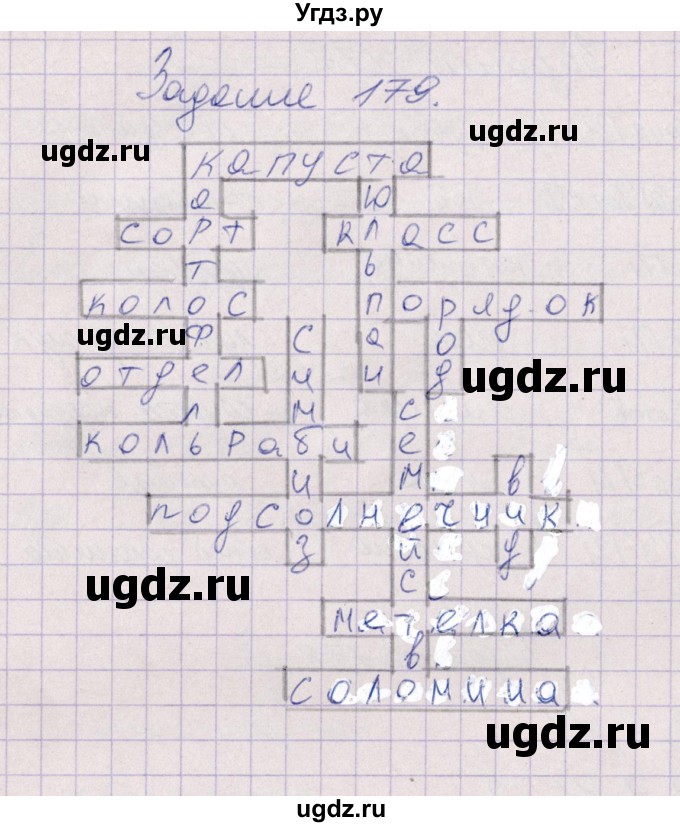 Угдз.ру
Задание 179.
ugdz.ru ugdz.ru
капуста
а ю
сорт класс
т ь
колос порядок
ugdz.ru ф с а о
отдел и и д ugdz.ru
л м с
кольраби е
и м в
подсолнечник
з й у
ugdz.ru с
метелка
в
соломина
ugdz.ru
ugdz.ru